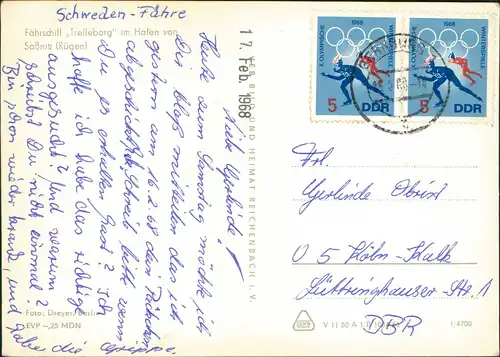 Schweden-Fähre
Fährschiff „Trelleborg" im Hafen von
Saßnitz (Rügen)
17. Feb. 1968
Liebe Gerlinde!
Heute zum Samstag möchte ich
Dir bloß mitteilen das ich
gestern am 16.2.68 dein Päckchen
abgeschickt habe. Schreib bitte wenn
Du es erhalten hast? Ich
hoffe ich habe das richtige
ausgesucht? und warum
schreibst Du nicht einmal?
Bin schon wieder krank, und
habe die Grippe.
Foto: Dreyer, Berlin
EVP –,25 MDN
BILD UND HEIMAT REICHENBACH I. V.
V 11 50 A 1/B
1/4700
1968
X. OLYMPISCHE
WINTERSPIELE
5
DDR
1968
X. OLYMPISCHE
WINTERSPIELE
5
DDR
Frl.
Gerlinde Obrist
U 5 Köln-Kalk
Lüttringhauser-Str. 1
DBR